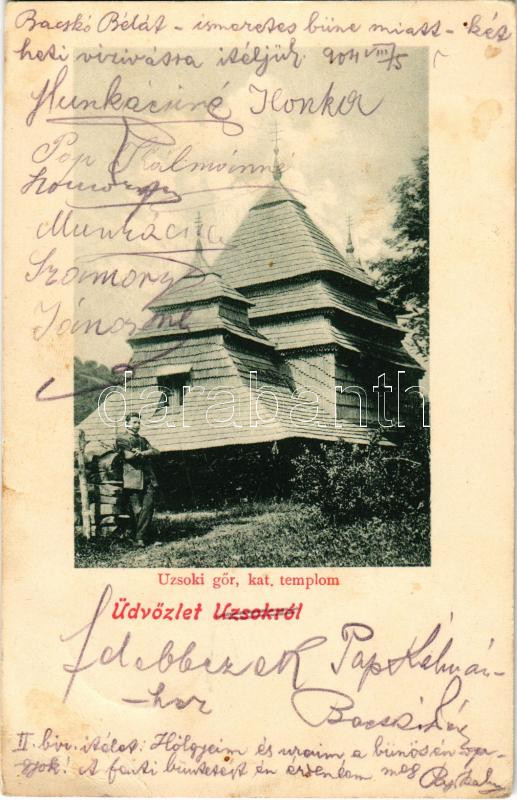 Bacskó Bélát - ismeretes bűne miatt - két
heti vizivásra itéljük. 904 VIII/5
Munkácsiné Ilonka
Pap Kálmánné
Munkácsi
Szamory
Jánosné
darabanth.com
Uzsoki gőr, kat. templom
Üdvőzlet Uzsokról
felebbezek Pap Kálmán-
-hoz
Bacskó
II. bir. itélet: Hölgyeim és uraim a bünösön
A fenti büntetést én meg